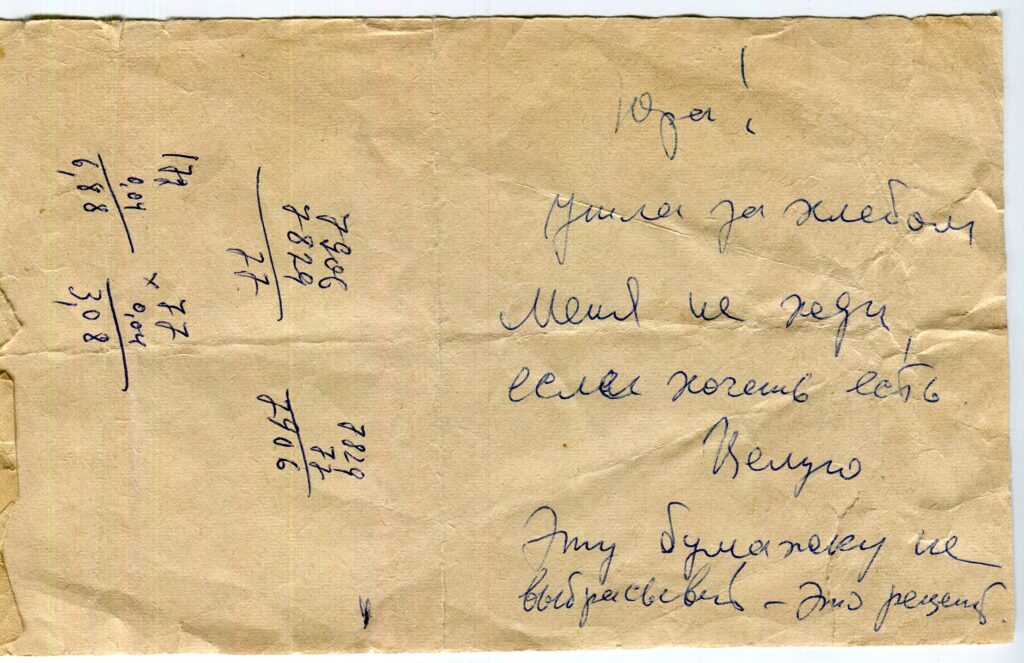 Юра!
Ушла за хлебом
Меня не жди,
если хочешь есть.
Целую.
Эту бумажку не
выбрасывай – это рецепт.
7906
7829
77
7829
77
7906
172
0,04
6,88
× 77
0,04
3,08